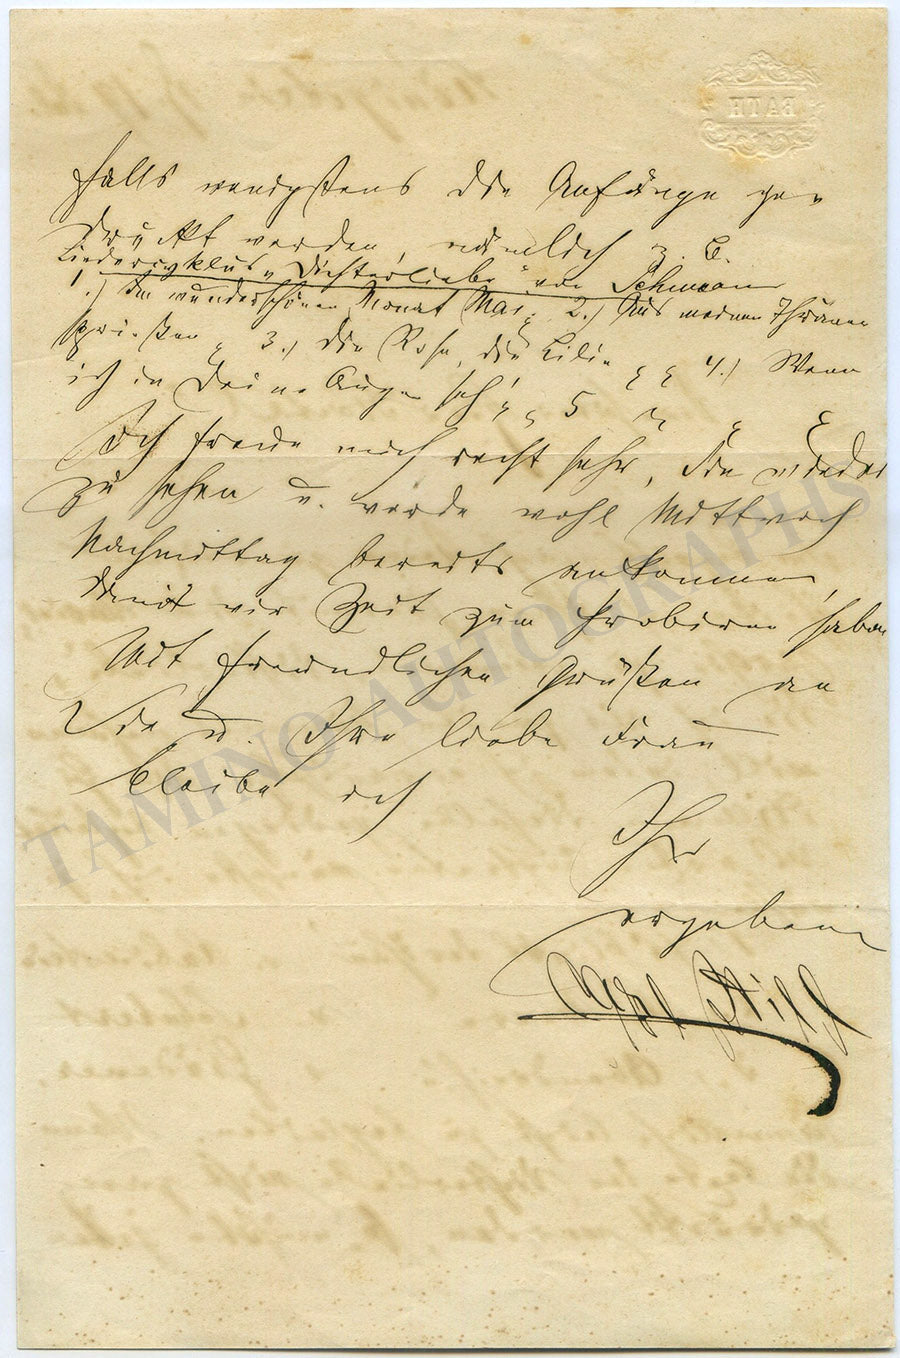 BATH
falls wenigstens die Anfänge ge-
druckt werden, nämlich z. B.
Liedercyklus „Dichterliebe" von Schumann
1.) Im wunderschönen Monat Mai, 2.) Aus meinen Thränen
sprießen 3.) die Rose, die Lilie 4.) Wenn
ich in Deine Augen seh' 5
Ich freue mich recht sehr, Sie wieder
zu sehen u. werde wohl Mittwoch
Nachmittag bereits ankommen,
damit wir Zeit zum Probiren haben
Mit freundlichen Grüßen an
Sie u. Ihre liebe Frau
bleibe ich
Ihr
ergebener
Karl Hill
TAMINO AUTOGRAPHS